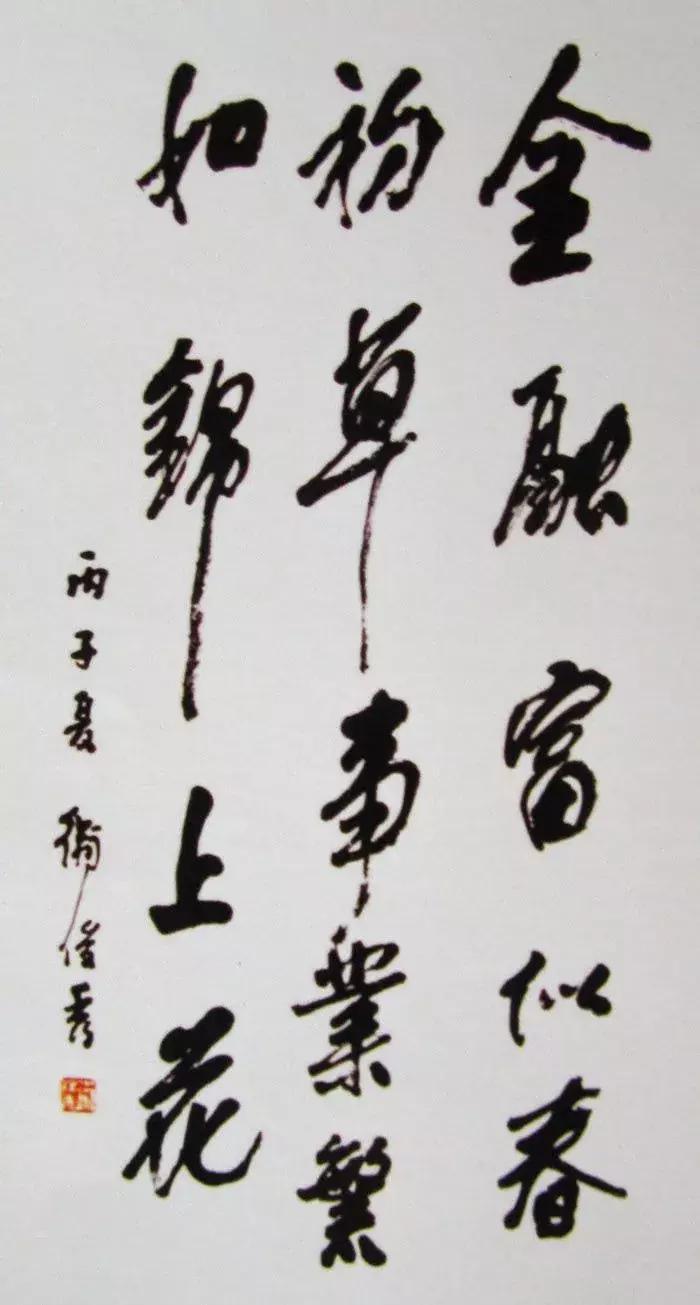 金融富似春
初草事業繁
如錦上花
丙子夏 衛俊秀